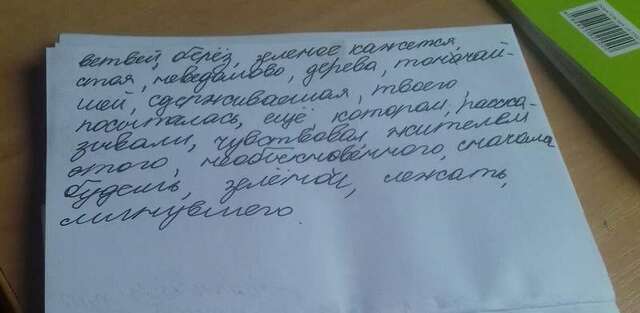 ветвей, берёз, зеленое кажется,
стая, неведомово, дерева, тончай-
шей, сдерживаемая, твоего
посыпалась, ещё, котором, расска-
зывали, чувствовал жителем
этого, необыкновенного, сначала
будешь, зелёной, лежать,
минувшего.